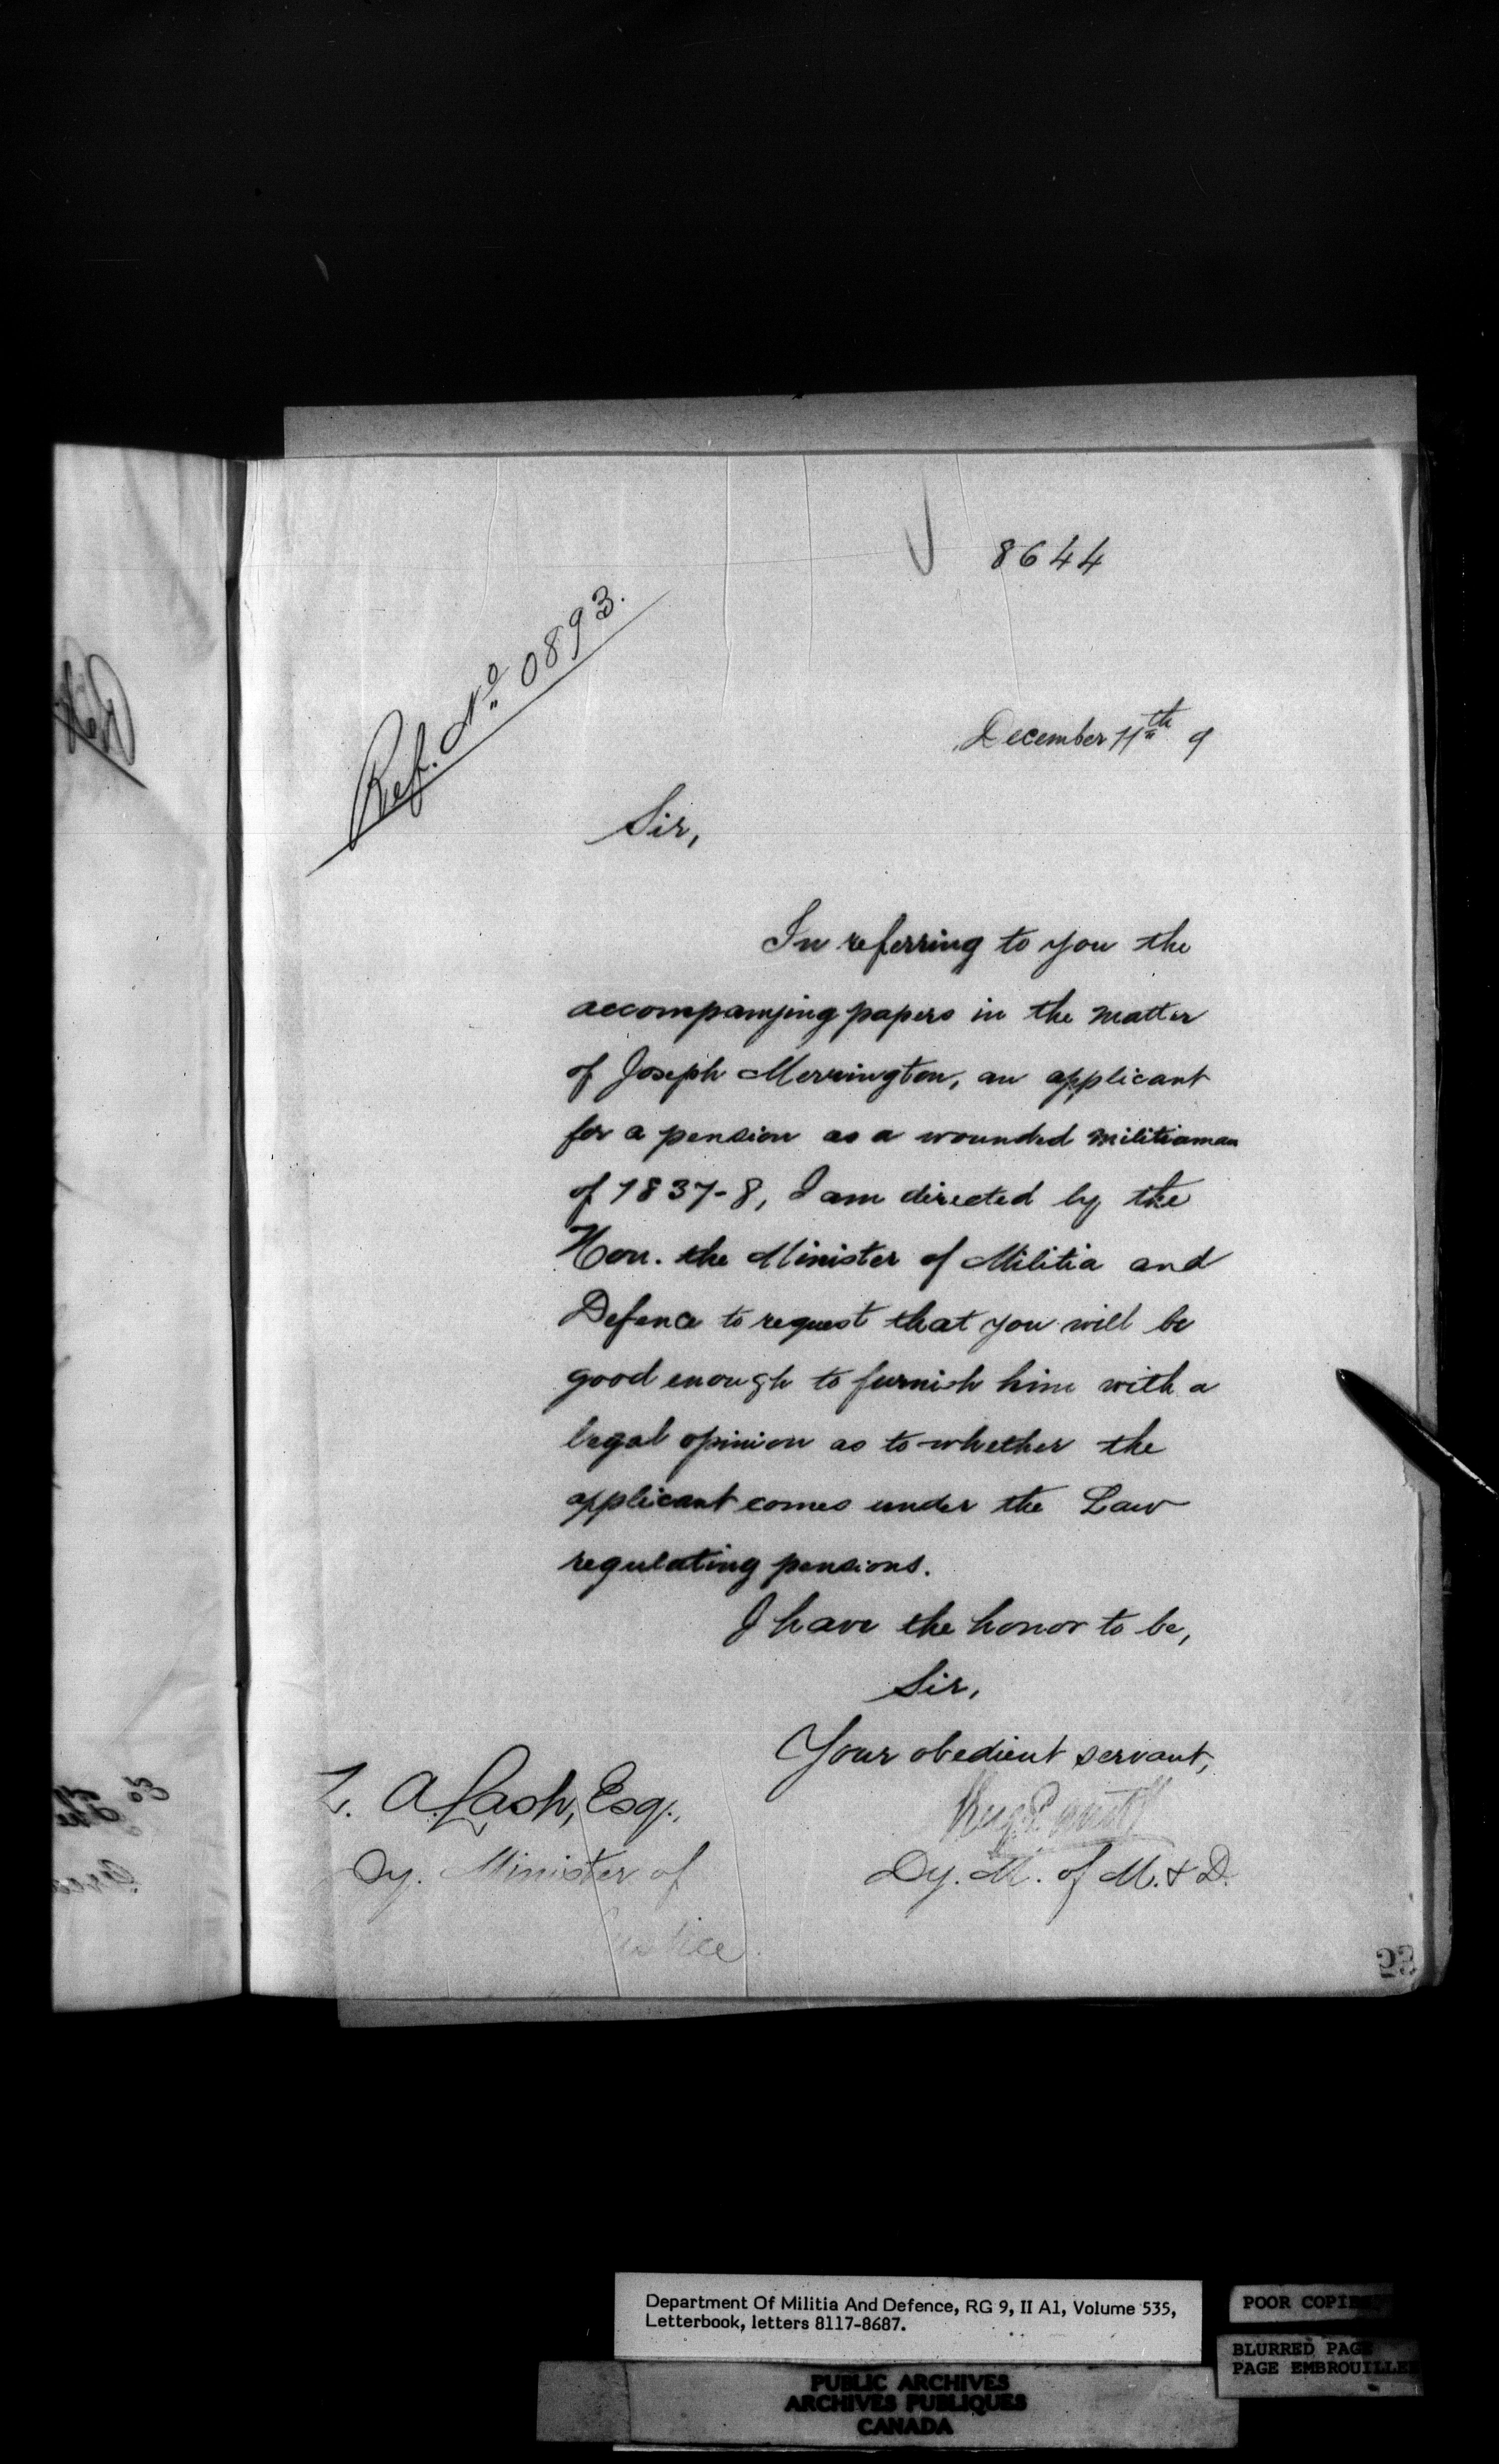 8644
Ref. No 0893.
December 11th 9
Sir,
In referring to you the
accompanying papers in the matter
of Joseph Merrington, an applicant
for a pension as a wounded militiaman
of 1837-8, I am directed by the
Hon. the Minister of Militia and
Defence to request that you will be
good enough to furnish him with a
legal opinion as to whether the
applicant comes under the Law
regulating pensions.
I have the honor to be,
Sir,
Your obedient servant,
Dy. M. of M. & D.
Z. A. Lash, Esq.,
Dy. Minister of
Justice.
Department Of Militia And Defence, RG 9, II A1, Volume 535,
Letterbook, letters 8117-8687.
POOR COPIES
BLURRED PAGE
PAGE EMBROUILLEE
PUBLIC ARCHIVES
ARCHIVES PUBLIQUES
CANADA